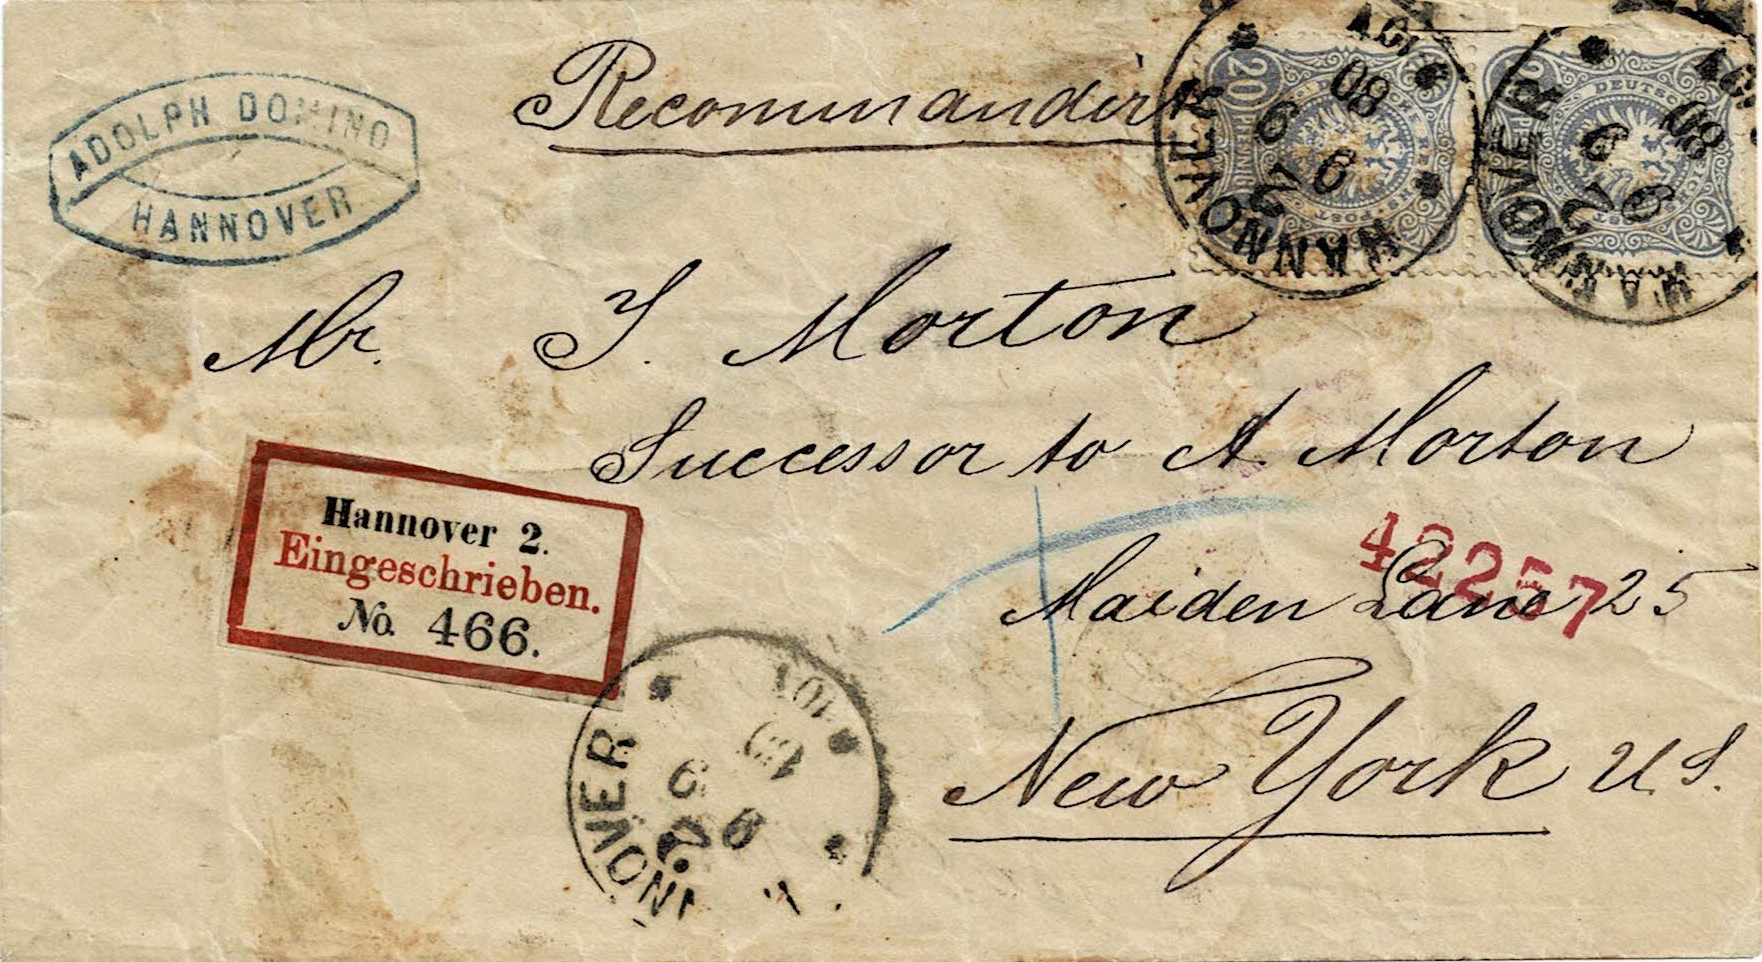 ADOLPH DOMINO
HANNOVER
Recommandirt
20 PFENNIG
HANNOVER
26 9 80
DEUTSCHE REICHS-POST
HANNOVER
26 9 80
Mr. I. Morton
Successor to A Morton
Maiden Lane 25
42257
New York U.S.
Hannover 2.
Eingeschrieben.
No. 466.